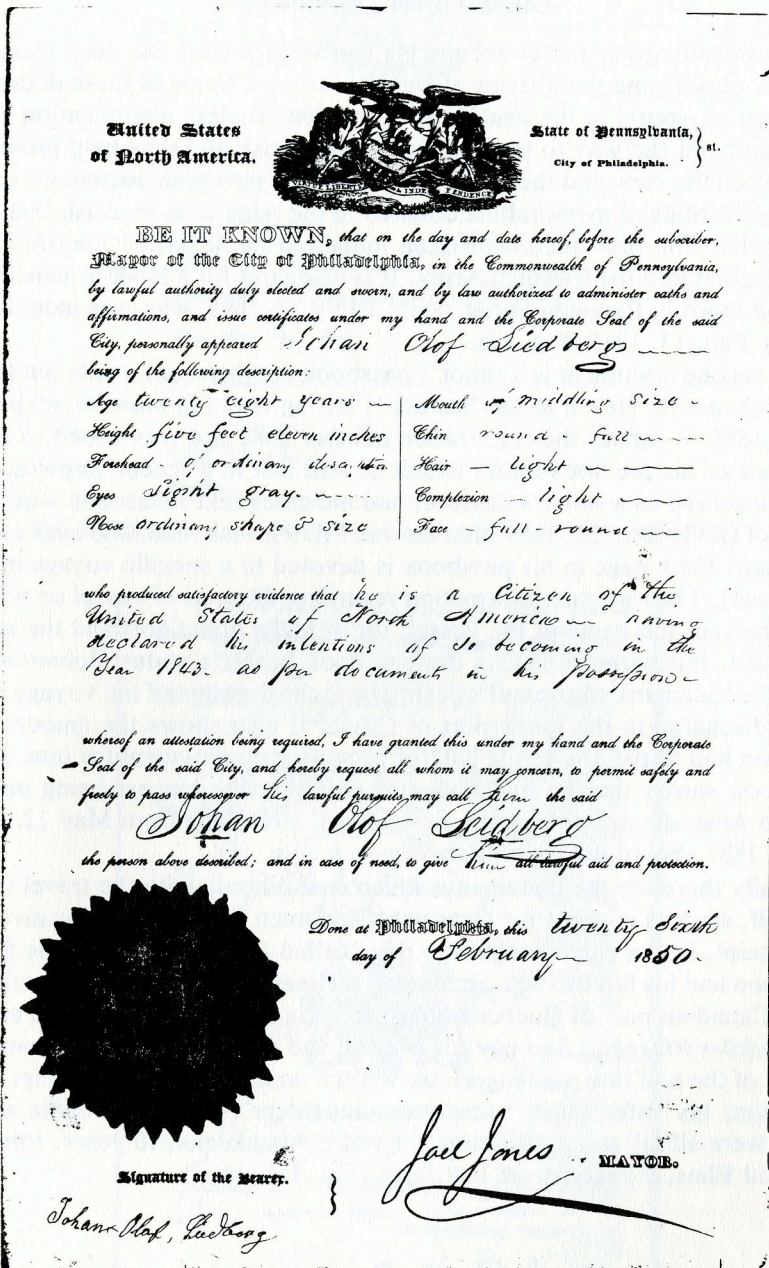 United States
of North America.
VIRTUE LIBERTY & INDEPENDENCE
State of Pennsylvania, } st.
City of Philadelphia.
BE IT KNOWN, that on the day and date hereof, before the subscriber,
Mayor of the City of Philadelphia, in the Commonwealth of Pennsylvania,
by lawful authority duly elected and sworn, and by law authorized to administer oaths and
affirmations, and issue certificates under my hand and the Corporate Seal of the said
City, personally appeared Johan Olof Liedbergs
being of the following description:
Age twenty eight years Mouth middling size
Height five feet eleven inches Chin round full
Forehead of ordinary Hair light
Eyes Light gray Complexion light
Nose ordinary shape & size Face full round
who produced satisfactory evidence that he is a Citizen of the
United States of North America having
declared his intentions of so becoming in the
Year 1843. as per documents in his possession
whereof an attestation being required, I have granted this under my hand and the Corporate
Seal of the said City, and hereby request all whom it may concern, to permit safely and
freely to pass wheresoever his lawful pursuits may call him the said
Johan Olof Leidberg
the person above described; and in case of need, to give him all lawful aid and protection.
Done at Philadelphia, this twenty Sixth
day of February 1850.
Joel Jones MAYOR.
Signature of the Bearer. }
Johan Olof, Liedberg